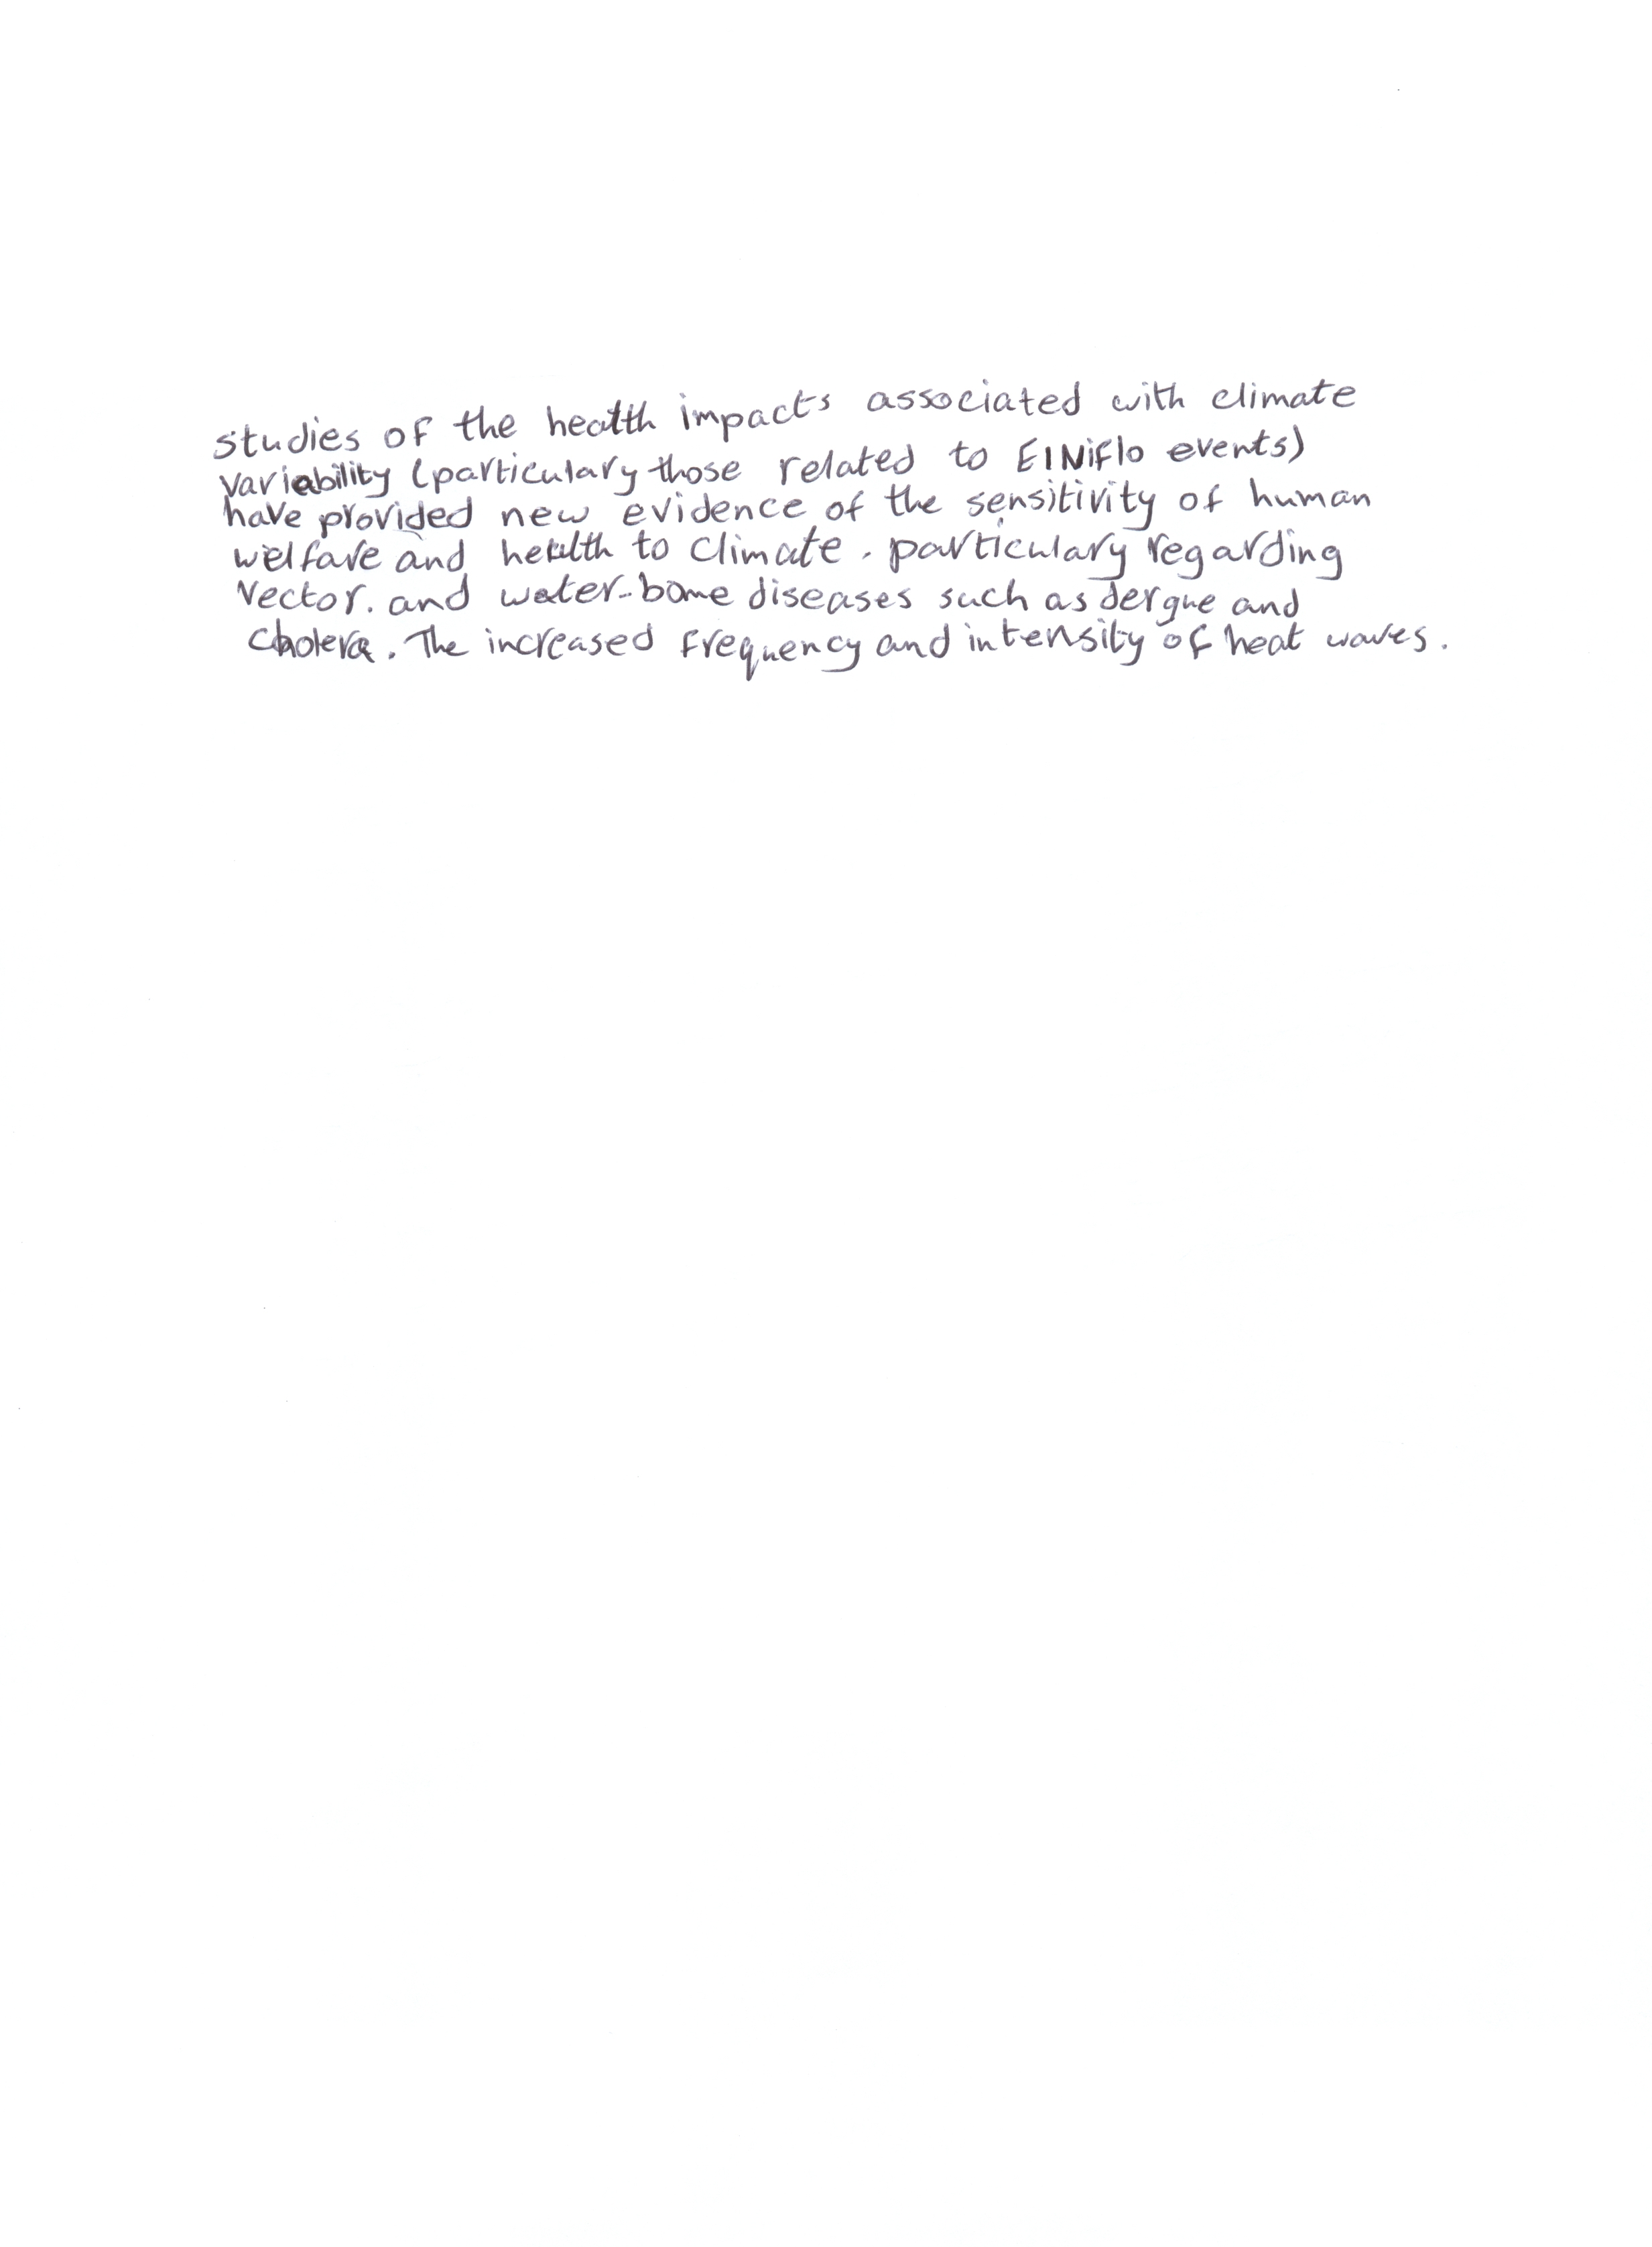 studies of the health impacts associated with climate
variability (particulary those related to EINiflo events)
have provided new evidence of the sensitivity of human
welfare and health to climate. particulary regarding
vector. and water-bome diseases such as dergue and
cholera. The increased frequency and intensity of heat waves.